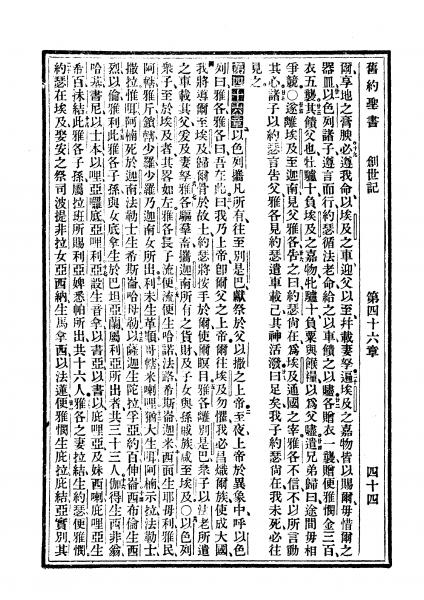 舊約聖書 創世記 第四十六章 四十四
爾享地之膏腴必遵我命以埃及之車迎父以至幷載妻孥遍埃及之嘉物皆以賜爾毋惜爾之
器皿以色列諸子遵言而行約瑟循法老命給之以車饋之以糈各贈衣一襲贈便雅憫金三百
衣五襲其饋父也牡驢十負埃及之嘉物牝驢十負粟與餱糧以爲父囑遣兄弟歸曰途間毋相
爭競○遂離埃及至迦南見父雅各告之曰約瑟尙在爲埃及通國之宰雅各不信不以所言動
其心諸子以約瑟言告父雅各見約瑟遣車載己其神活潑曰足矣我子約瑟尙在我未死必往
見之
第四十六章 以色列攜凡所有往至別是巴獻祭於父以撒之上帝至夜上帝於異象中呼以色
列曰雅各雅各曰吾在此曰我乃上帝卽爾父之上帝爾往埃及勿懼我必昌熾爾族使成大國
我將導爾至埃及歸爾骨於故土約瑟將按手於爾使爾瞑目雅各離別是巴衆子以法老所遣
之車載其父及妻孥雅各驅羣畜攜迦南所有之貨財及子女與孫戚族咸至埃及○以色列
衆子至於埃及者其畧如左雅各長子流便流便生哈諾法路希斯崙迦米西面生耶母利雅民
阿轄雅斤鎖轄少羅少羅乃迦南女所出利未生革順哥轄米喇哩猶大生咡阿楠示拉法勒士
撒拉惟咡阿楠死於迦南法勒士生希斯崙哈母勒以薩迦生陀拉孚亞約百伸崙西布倫生西
烈以倫雅利此雅各子孫與女底拿生於巴坦亞蘭屬利亞所出者共三十三人伽得生西非翁
哈基書尼以士本以哩亞囉底亞哩利亞設生音拿以書亞以書以庇哩亞及妹西喇庇哩亞生
希百抹結此雅各子孫屬拉班所賜利亞婢悉帕所出共十六人雅各之妻拉結生約瑟便雅憫
約瑟在埃及娶安之祭司波提非拉女亞西納生馬拿西以法蓮便雅憫生庇拉庇結亞實別其